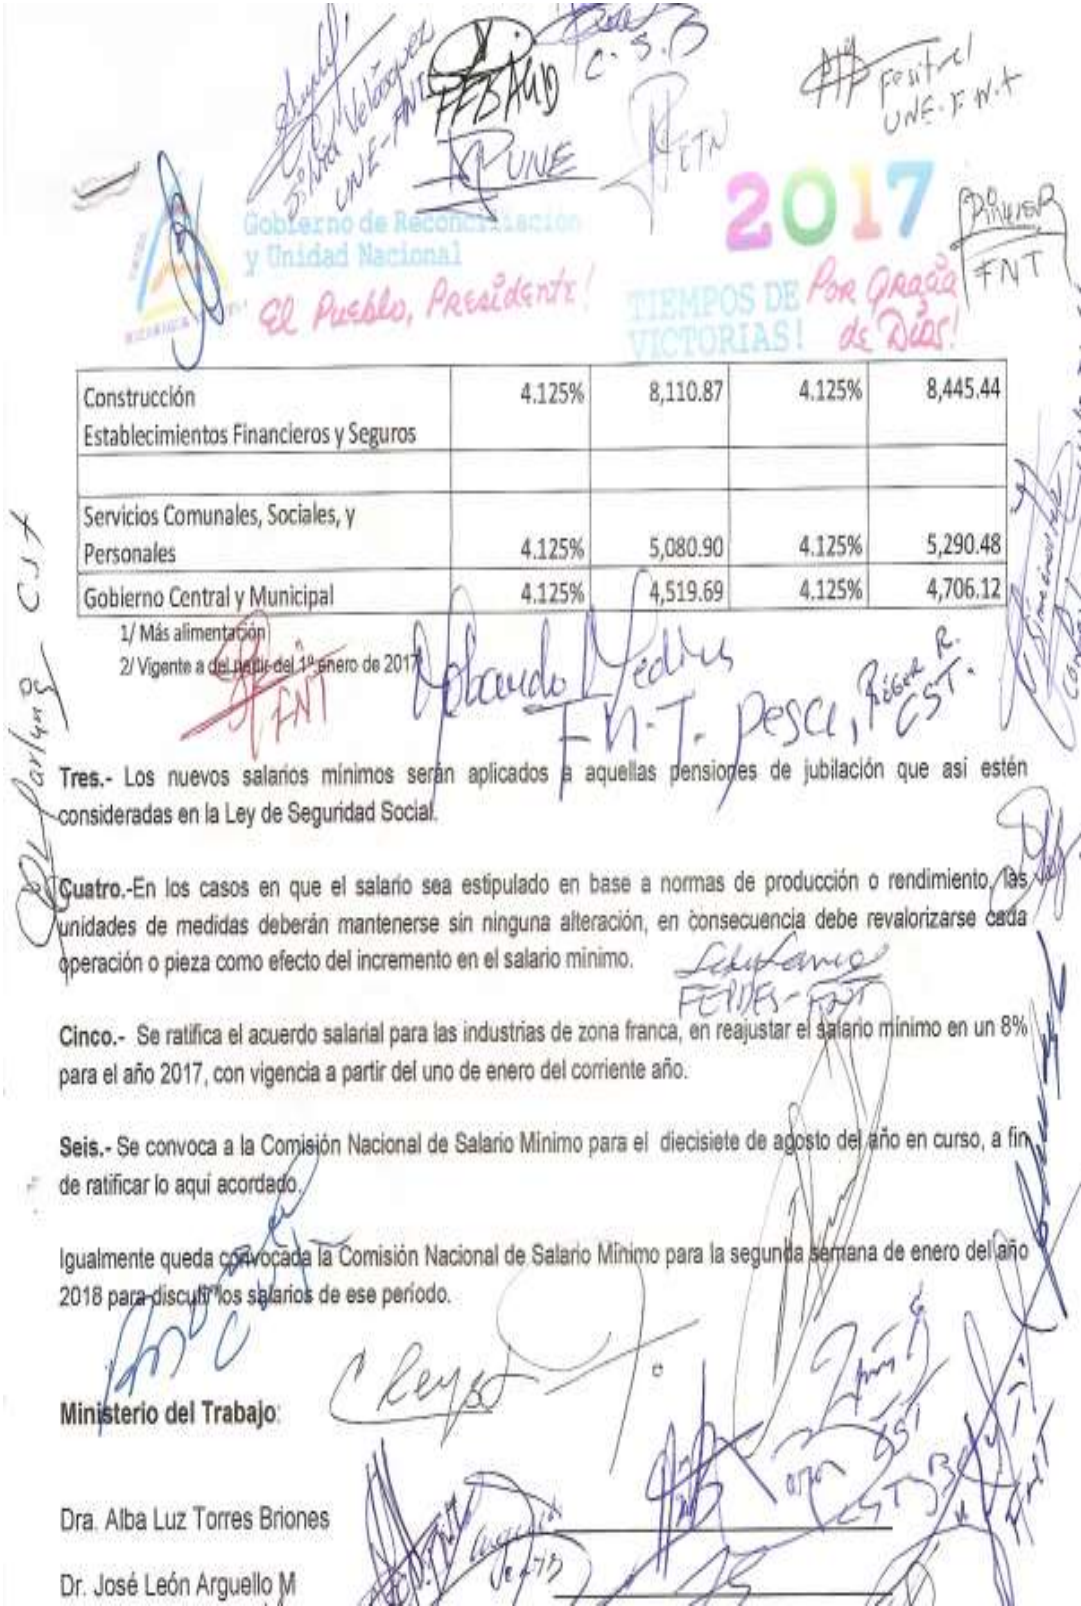 Silvia Velásquez
UNE-FNT
FEBAUD
C.S.B
UNE
CTN
Fesitrel
UNE-F.N.T
FNT
Gobierno de Reconciliación
y Unidad Nacional
El Pueblo, Presidente!
2017
TIEMPOS DE
VICTORIAS!
Por Gracia
de Dios!
Construcción 4.125% 8,110.87 4.125% 8,445.44
Establecimientos Financieros y Seguros
Servicios Comunales, Sociales, y
Personales 4.125% 5,080.90 4.125% 5,290.48
Gobierno Central y Municipal 4.125% 4,519.69 4.125% 4,706.12
1/ Más alimentación
2/ Vigente a del partir del 1º enero de 2017
FNT
F.N.T. Pesca,
Roger R.
CST.
Tres.- Los nuevos salarios mínimos serán aplicados a aquellas pensiones de jubilación que así estén
consideradas en la Ley de Seguridad Social.
Cuatro.-En los casos en que el salario sea estipulado en base a normas de producción o rendimiento, las
unidades de medidas deberán mantenerse sin ninguna alteración, en consecuencia debe revalorizarse cada
operación o pieza como efecto del incremento en el salario mínimo.
Cinco.- Se ratifica el acuerdo salarial para las industrias de zona franca, en reajustar el salario mínimo en un 8%
para el año 2017, con vigencia a partir del uno de enero del corriente año.
Seis.- Se convoca a la Comisión Nacional de Salario Mínimo para el diecisiete de agosto del año en curso, a fin
de ratificar lo aquí acordado.
Igualmente queda convocada la Comisión Nacional de Salario Mínimo para la segunda semana de enero del año
2018 para discutir los salarios de ese período.
C Reyes
Ministerio del Trabajo:
Dra. Alba Luz Torres Briones
Dr. José León Arguello M